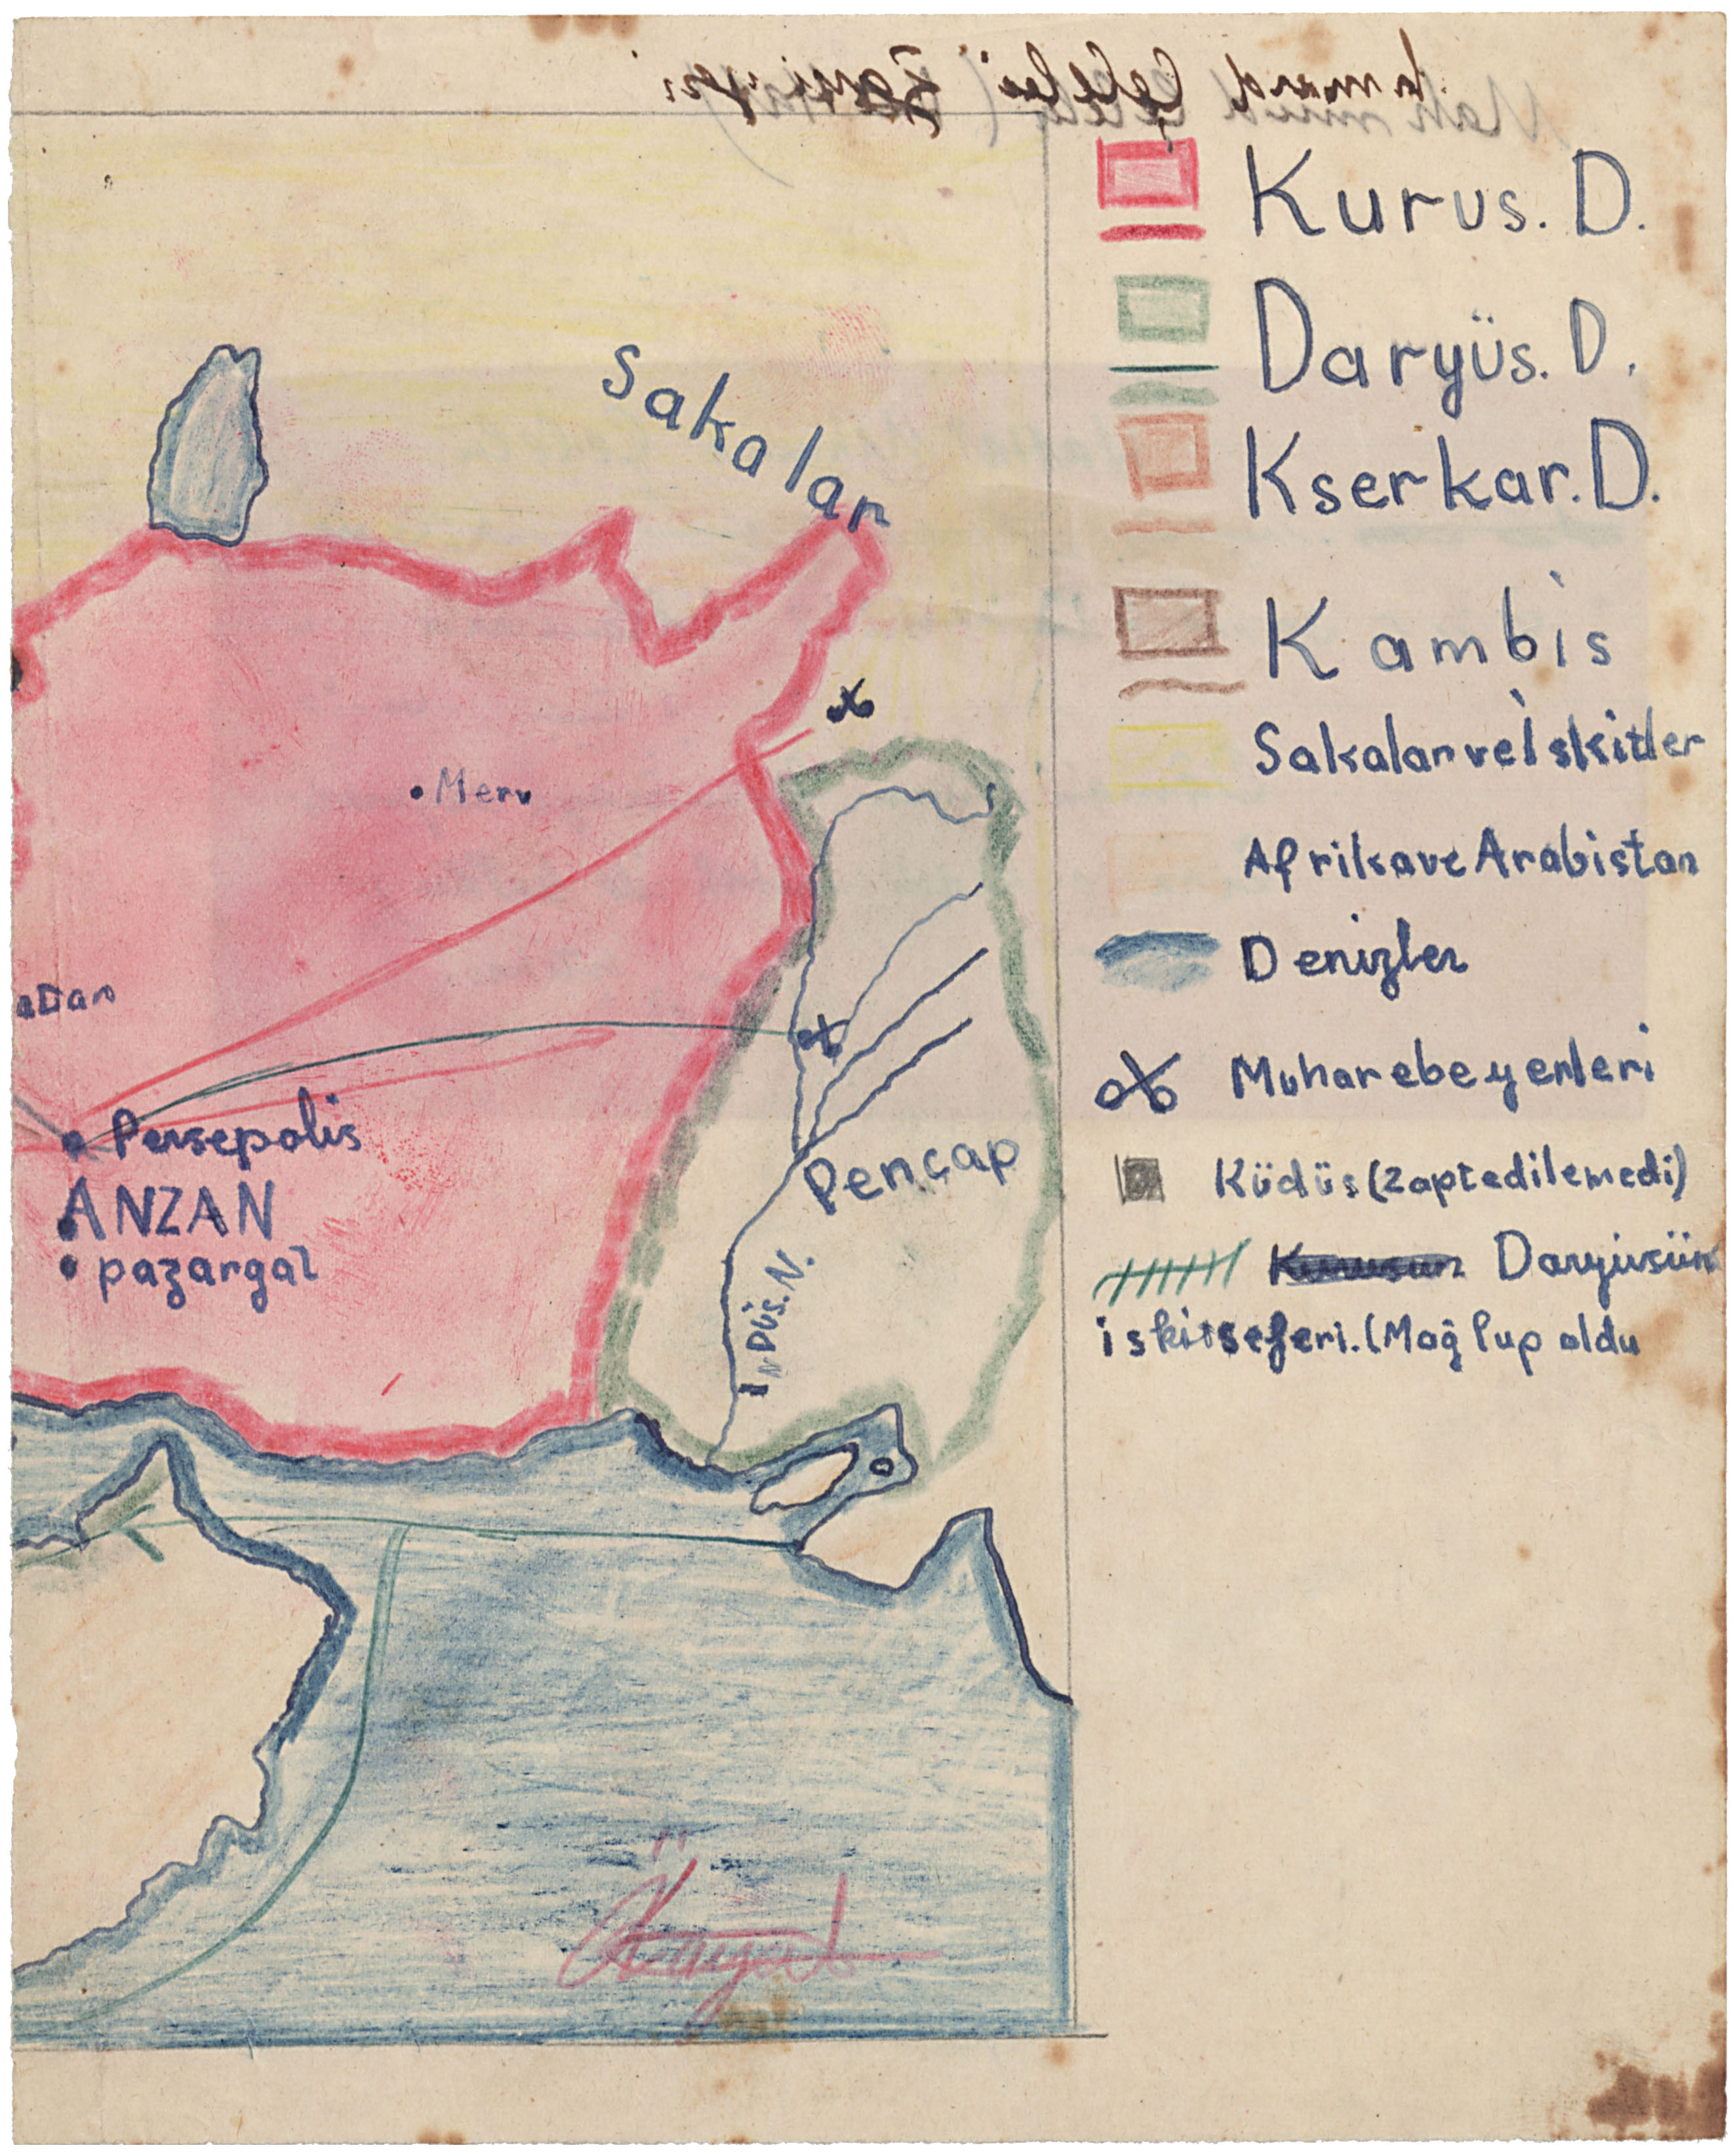 Kurus. D.
Daryüs. D.
Kserkar. D.
Kambis
Sakalar ve İskitler
Afrika ve Arabistan
Denizler
Muharebe yerleri
Küdüs (zaptedilemedi)
Daryüsün
iskit seferi. (Mağlup oldu
Sakalar
Merv
atan
Persepolis
ANZAN
pazargat
Pencap
İndüs. N.